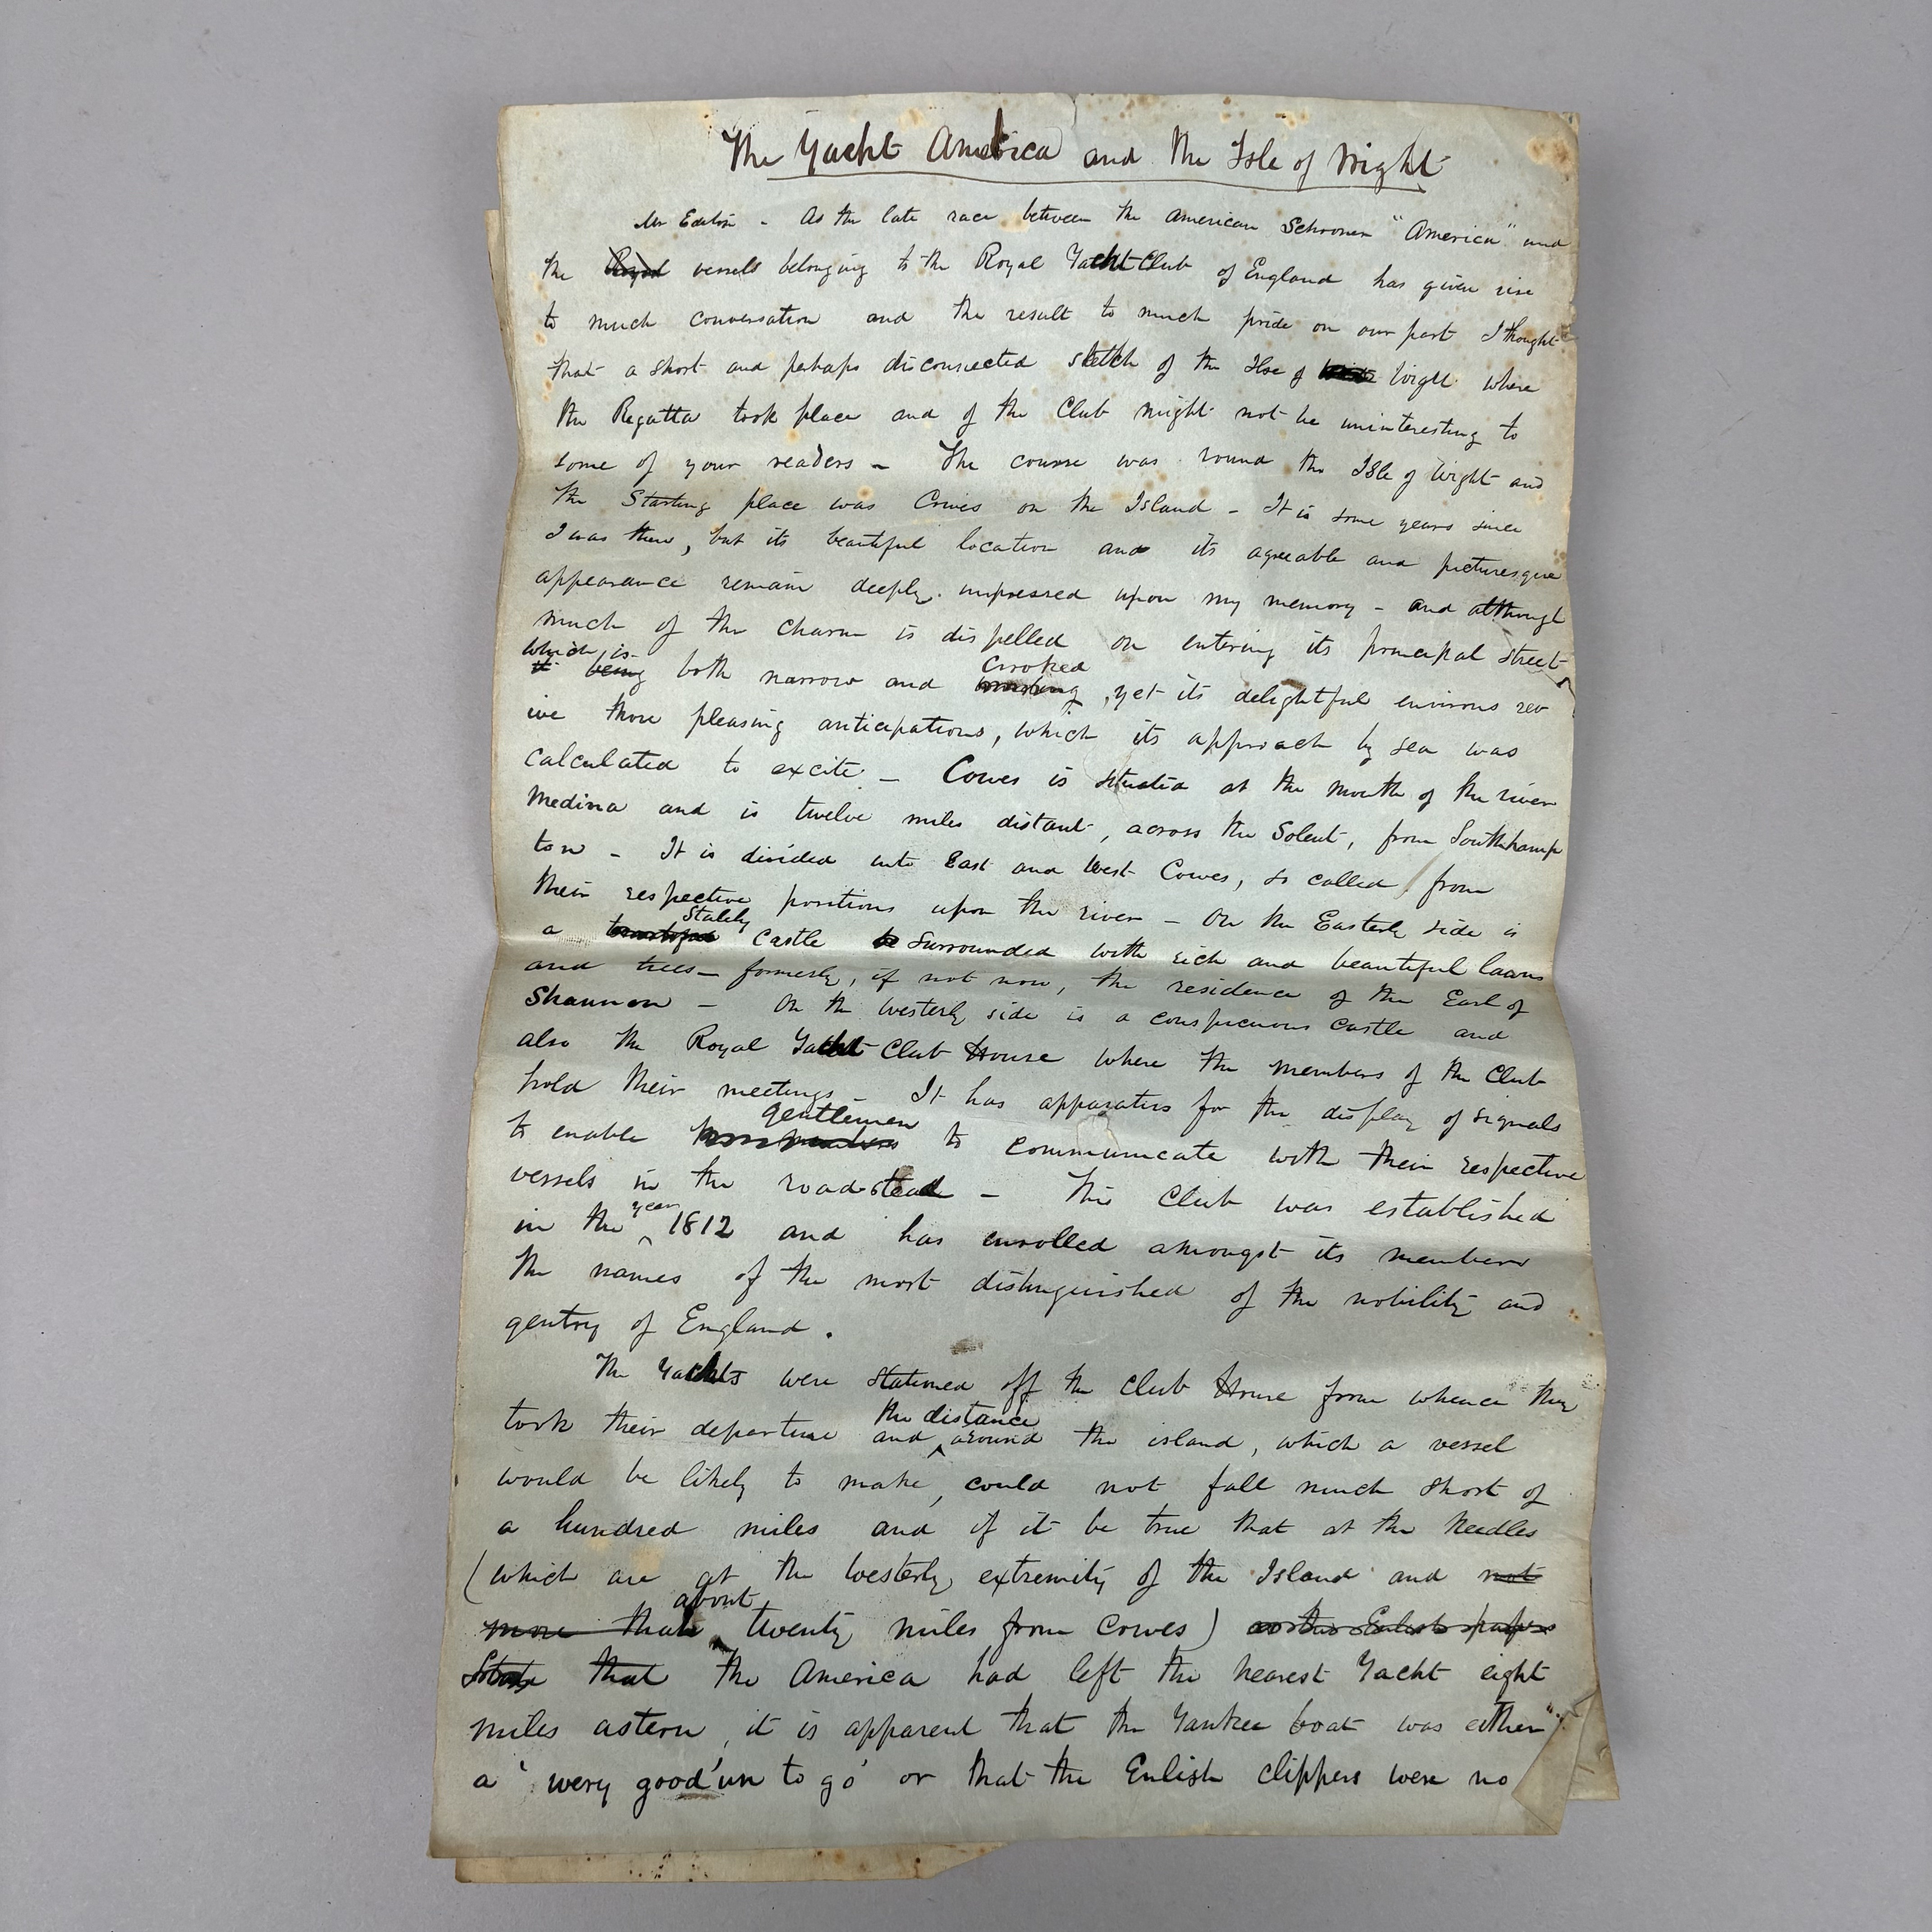 The Yacht America and the Isle of Wight
Mr Editor - As the late race between the American Schooner "America" and
the Royal vessels belonging to the Royal Yacht Club of England has given rise
to much conversation and the result to much pride on our part I thought
that a short and perhaps disconnected sketch of the Isle of Wight where
the Regatta took place and of the Club might not be uninteresting to
some of your readers - The course was round the Isle of Wight and
the Starting place was Cowes on the Island - It is some years since
I was there, but its beautiful location and its agreeable and picturesque
appearance remain deeply impressed upon my memory - and although
much of the charm is dispelled on entering its principal street
which is
it being both narrow and crooked, yet its delightful environs rev
ive those pleasing anticipations, which its approach by sea was
calculated to excite - Cowes is situated at the mouth of the river
Medina and is twelve miles distant, across the Solent, from Southhamp
ton - It is divided into East and West Cowes, so called from
their respective positions upon the river - On the Easterly side is
a stately castle surrounded with rich and beautiful lawns
and trees - formerly, if not now, the residence of the Earl of
Shannon - On the Westerly side is a conspicuous castle and
also the Royal Yacht Club House where the members of the Club
hold their meetings - It has apparatus for the display of signals
to enable gentlemen to communicate with their respective
vessels in the roadstead - This Club was established
in the year 1812 and has enrolled amongst its members
the names of the most distinguished of the nobility and
gentry of England.
The Yachts were stationed off the Club House from whence they
took their departure and the distance around the island, which a vessel
would be likely to make, could not fall much short of
a hundred miles and if it be true that at the Needles
(which are at the Westerly extremity of the Island and not
more than about twenty miles from Cowes) as the Enlish papers
State that the America had left the nearest Yacht eight
miles astern, it is apparent that the Yankee boat was either
a 'wery good'un to go' or that the Enlish clippers were no